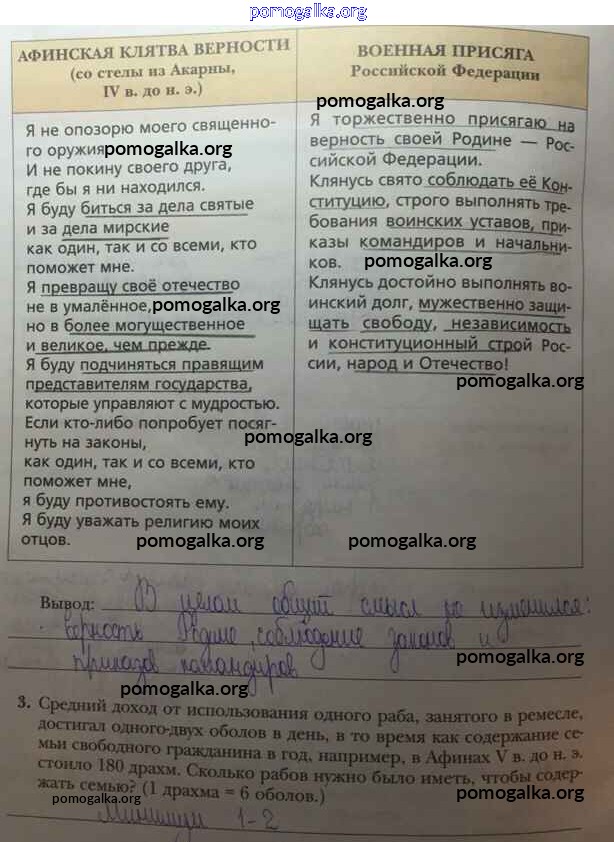 pomogalka.org
АФИНСКАЯ КЛЯТВА ВЕРНОСТИ
(со стелы из Акарны,
IV в. до н. э.)
Я не опозорю моего священно-
го оружия pomogalka.org
И не покину своего друга,
где бы я ни находился.
Я буду биться за дела святые
и за дела мирские
как один, так и со всеми, кто
поможет мне.
Я превращу своё отечество
не в умалённое, pomogalka.org
но в более могущественное
и великое, чем прежде.
Я буду подчиняться правящим
представителям государства,
которые управляют с мудростью.
Если кто-либо попробует посяг-
нуть на законы, pomogalka.org
как один, так и со всеми, кто
поможет мне,
я буду противостоять ему.
Я буду уважать религию моих
отцов. pomogalka.org
ВОЕННАЯ ПРИСЯГА
Российской Федерации
pomogalka.org
Я торжественно присягаю на
верность своей Родине — Рос-
сийской Федерации.
Клянусь свято соблюдать её Кон-
ституцию, строго выполнять тре-
бования воинских уставов, при-
казы командиров и начальни-
ков. pomogalka.org
Клянусь достойно выполнять во-
инский долг, мужественно защи-
щать свободу, независимость
и конституционный строй Рос-
сии, народ и Отечество!
pomogalka.org
pomogalka.org
Вывод: В целом общий смысл не изменился:
верность Родине, соблюдение законов и
приказов командиров pomogalka.org
pomogalka.org
3. Средний доход от использования одного раба, занятого в ремесле,
достигал одного-двух оболов в день, в то время как содержание се-
мьи свободного гражданина в год, например, в Афинах V в. до н. э.
стоило 180 драхм. Сколько рабов нужно было иметь, чтобы содер-
жать семью? (1 драхма = 6 оболов.)
pomogalka.org pomogalka.org
Минимум 1-2